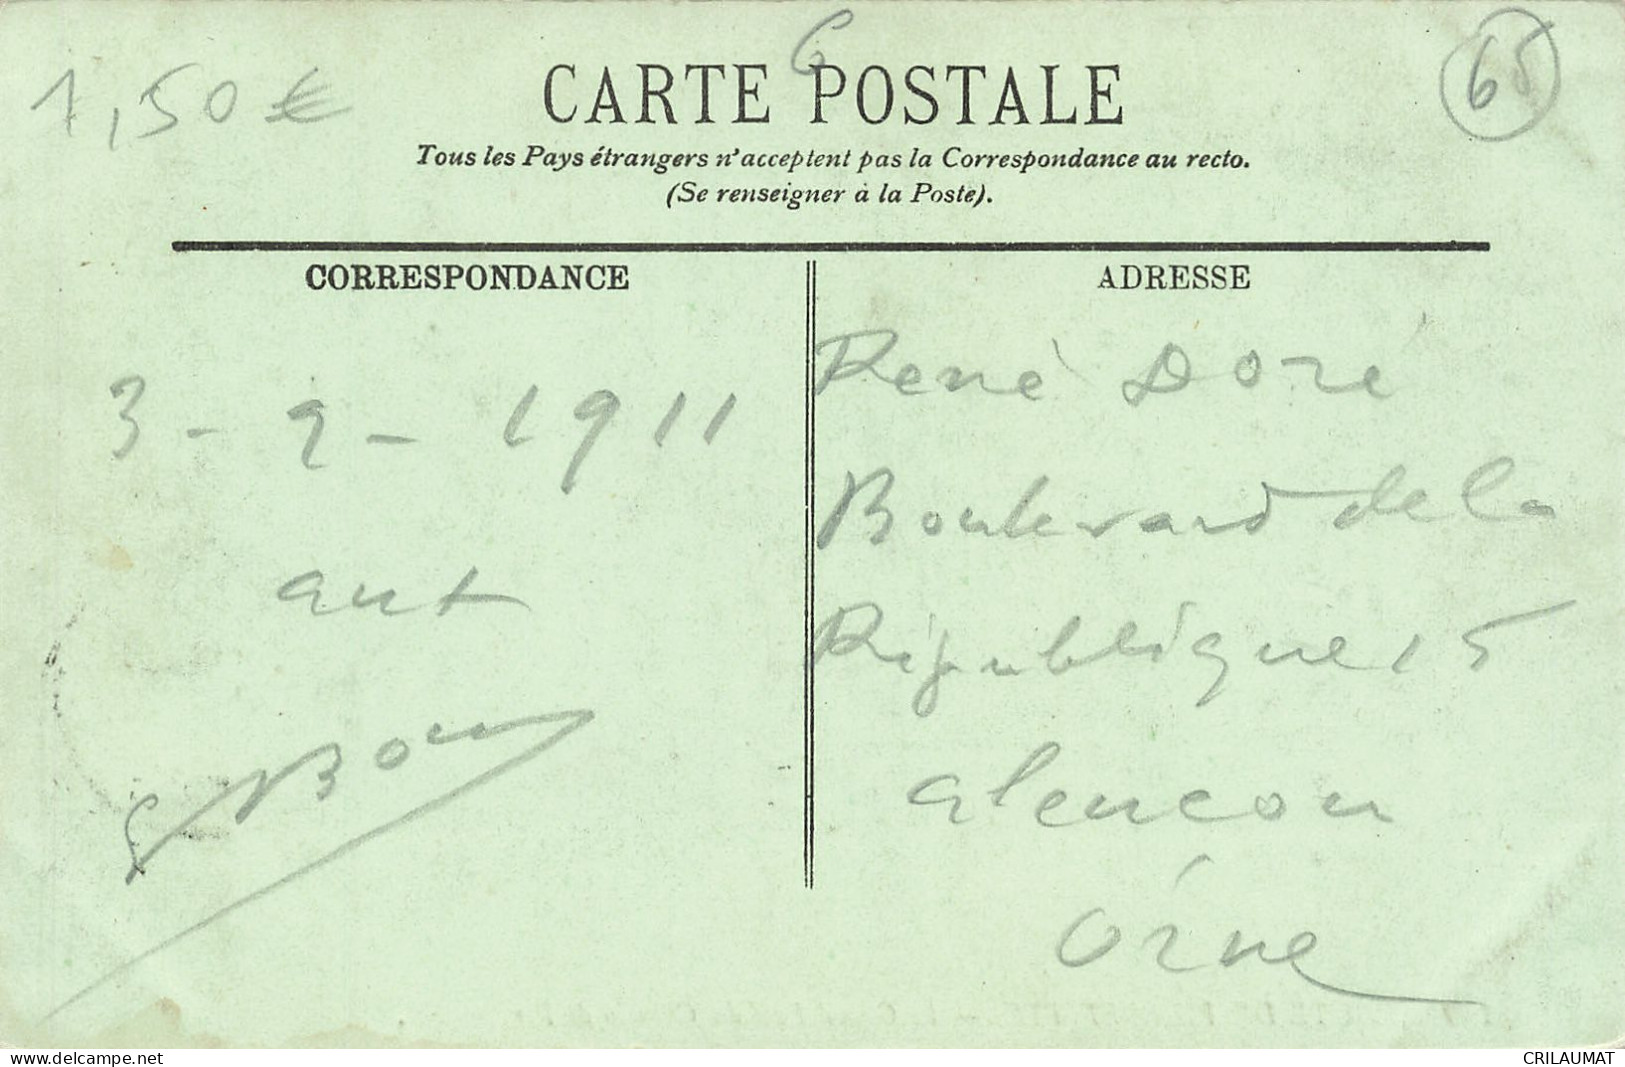 1,50 €
6
65
CARTE POSTALE
Tous les Pays étrangers n'acceptent pas la Correspondance au recto.
(Se renseigner à la Poste).
CORRESPONDANCE
ADRESSE
3 - 9 - 1911
René Doré
Boulevard de la
République 15
Alencon
Orne
www.delcampe.net
CRILAUMAT